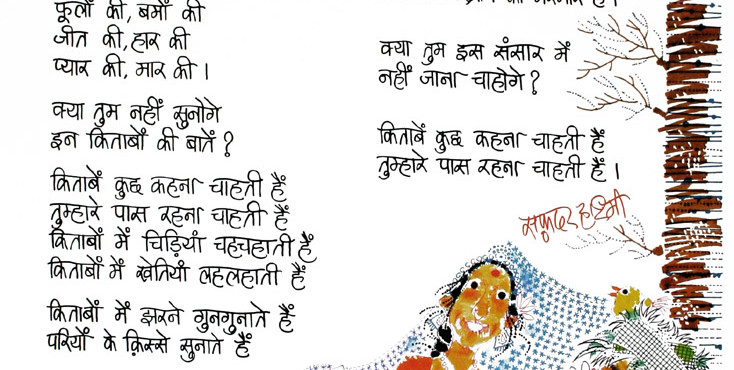 फूलों की, बमों की
जीत की, हार की
प्यार की, मार की ।
क्या तुम नहीं सुनोगे
इन किताबों की बातें ?
किताबें कुछ कहना चाहती हैं
तुम्हारे पास रहना चाहती हैं
किताबों में चिड़ियाँ चहचहाती हैं
किताबों में खेतियाँ लहलहाती हैं
किताबों में झरने गुनगुनाते हैं
परियों के क़िस्से सुनाते हैं
क्या तुम इस संसार में
नहीं जाना चाहोगे ?
किताबें कुछ कहना चाहती हैं
तुम्हारे पास रहना चाहती हैं ।
सफ़दर हाशमी